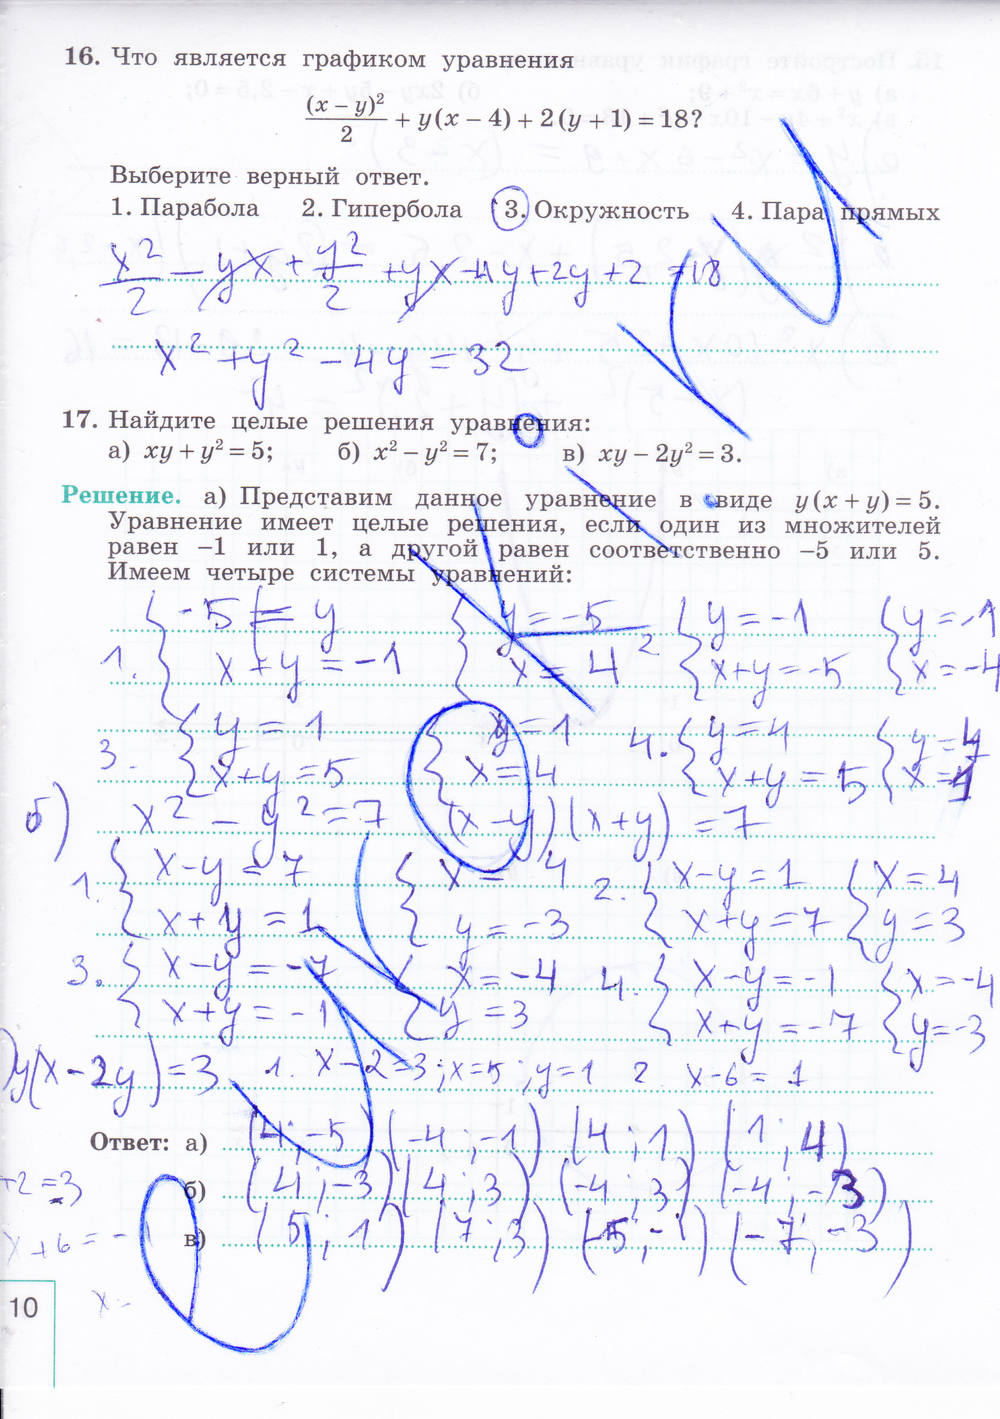 16. Что является графиком уравнения
(x − y)²/2 + y(x − 4) + 2(y + 1) = 18?
Выберите верный ответ.
1. Парабола 2. Гипербола 3. Окружность 4. Пара прямых
x²/2 − yx + y²/2 + yx − 4y + 2y + 2 = 18
x² + y² − 4y = 32
17. Найдите целые решения уравнения:
а) xy + y² = 5; б) x² − y² = 7; в) xy − 2y² = 3.
Решение. а) Представим данное уравнение в виде y(x + y) = 5.
Уравнение имеет целые решения, если один из множителей
равен −1 или 1, а другой равен соответственно −5 или 5.
Имеем четыре системы уравнений:
1. { −5 = y { y = −5 2. { y = −1 { y = −1
x + y = −1 x = 4 x + y = −5 x = −4
3. { y = 1 { y = 1 4. { y = 4 { y = 4
x + y = 5 x = 4 x + y = 5 x = 1
б) x² − y² = 7 (x − y)(x + y) = 7
1. { x − y = 7 { x = 4 2. { x − y = 1 { x = 4
x + y = 1 y = −3 x + y = 7 y = 3
3. { x − y = −7 { x = −4 4. { x − y = −1 { x = −4
x + y = −1 y = 3 x + y = −7 y = −3
) y(x − 2y) = 3 1. x − 2 = 3; x = 5; y = 1 2. x − 6 = 1
Ответ: а) (4; −5) (−4; −1) (4; 1) (1; 4)
+2 = 3
б) (4; −3) (4; 3) (−4; 3) (−4; −3)
x + 6 = −1
в) (5; 1) (7; 3) (−5; −1) (−7; −3)
x =
10